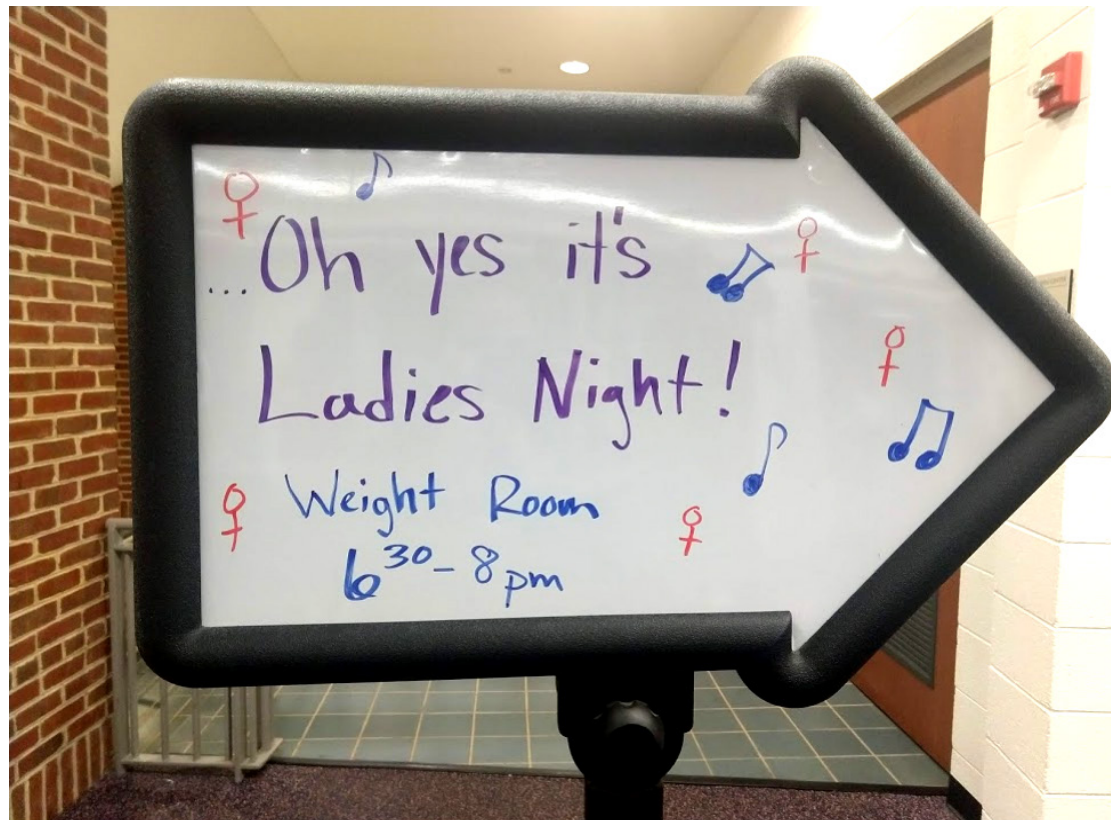 ...Oh yes it's
Ladies Night!
Weight Room
6³⁰-8pm